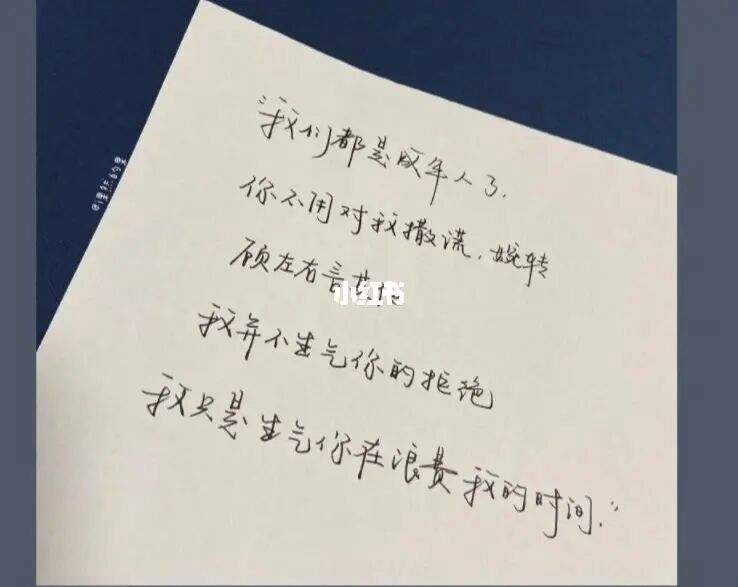 “我们都是成年人了.
你不用对我撒谎.婉转
顾左右言其他
小红书
我并不生气你的拒绝
我只是生气你在浪费我的时间.”